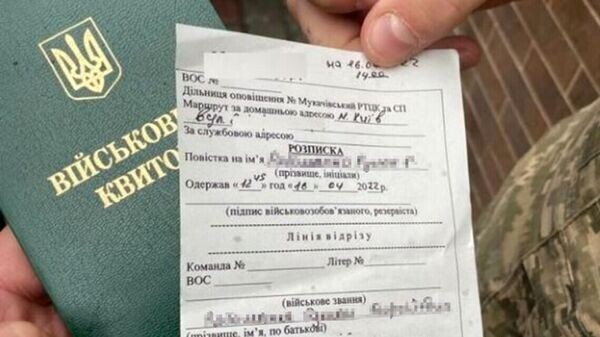 ВІЙСЬКОВ
КВИТО
на 16.0 22
14.00
ВОС №
Дільниця оповіщення № Мукачівський РТЦК та СП
Маршрут за домашньою адресою м. Київ
Вул
За службовою адресою
РОЗПИСКА
Повістка на ім'я
(прізвище, ініціали)
Одержав «12 45» год «16» 04 2022р.
(підпис військовозобов'язаного, резервіста)
Лінія відрізу
Команда № Літер №
ВОС
(військове звання)
(прізвище, ім'я, по батькові)